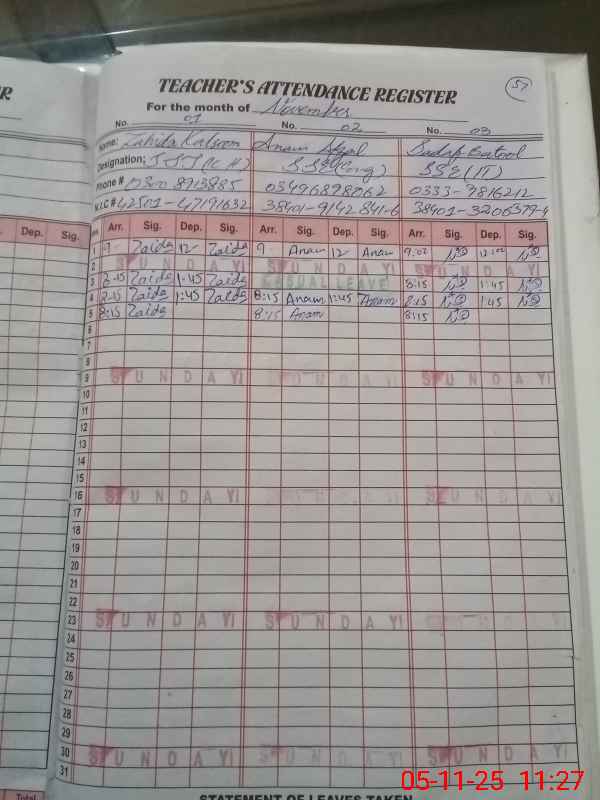 ER
TEACHER'S ATTENDANCE REGISTER
57
For the month of November
No. 01 No. 02 No. 03
Name: Zahida Kalsoom Anam Sadaf Batool
Designation: SST( SSE(Eng) SSE(IT)
Phone # 0300 8913885 03496898062 0333-9816212
N.I.C # 42501-47191632 38401-9142841-6 38401-3206379-4
Dep. Sig. Arr. Sig. Dep. Sig. Arr. Sig. Dep. Sig. Arr. Sig. Dep. Sig.
1 9- Zaida 12- Zaida 9- Anam 12 Anam 9:02
2 SUNDAY! SUNDAY! SUNDAY!
3 8-15 Zaida 1:45 Zaida CASUAL LEAVE 8:15 1:45
4 8-15 Zaida 1:45 Zaida 8:15 Anam 1:45 Anam 8:15 1:45
5 8:15 Zaida 8:15 Anam 8:15
6
7
8
9 SUNDAY! SUNDAY! SUNDAY!
10
11
12
13
14
15
16 SUNDAY! SUNDAY! SUNDAY!
17
18
19
20
21
22
23 SUNDAY! SUNDAY! SUNDAY!
24
25
26
27
28
29
30 SUNDAY! SUNDAY! SUNDAY!
31
Total STATEMENT OF LEAVES TAKEN
05-11-25 11:27